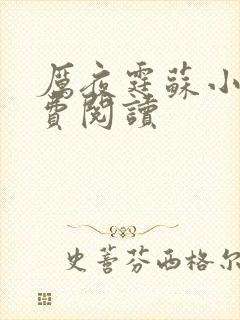 厲夜霆蘇小
費閱讀
史蒂芬西格尔